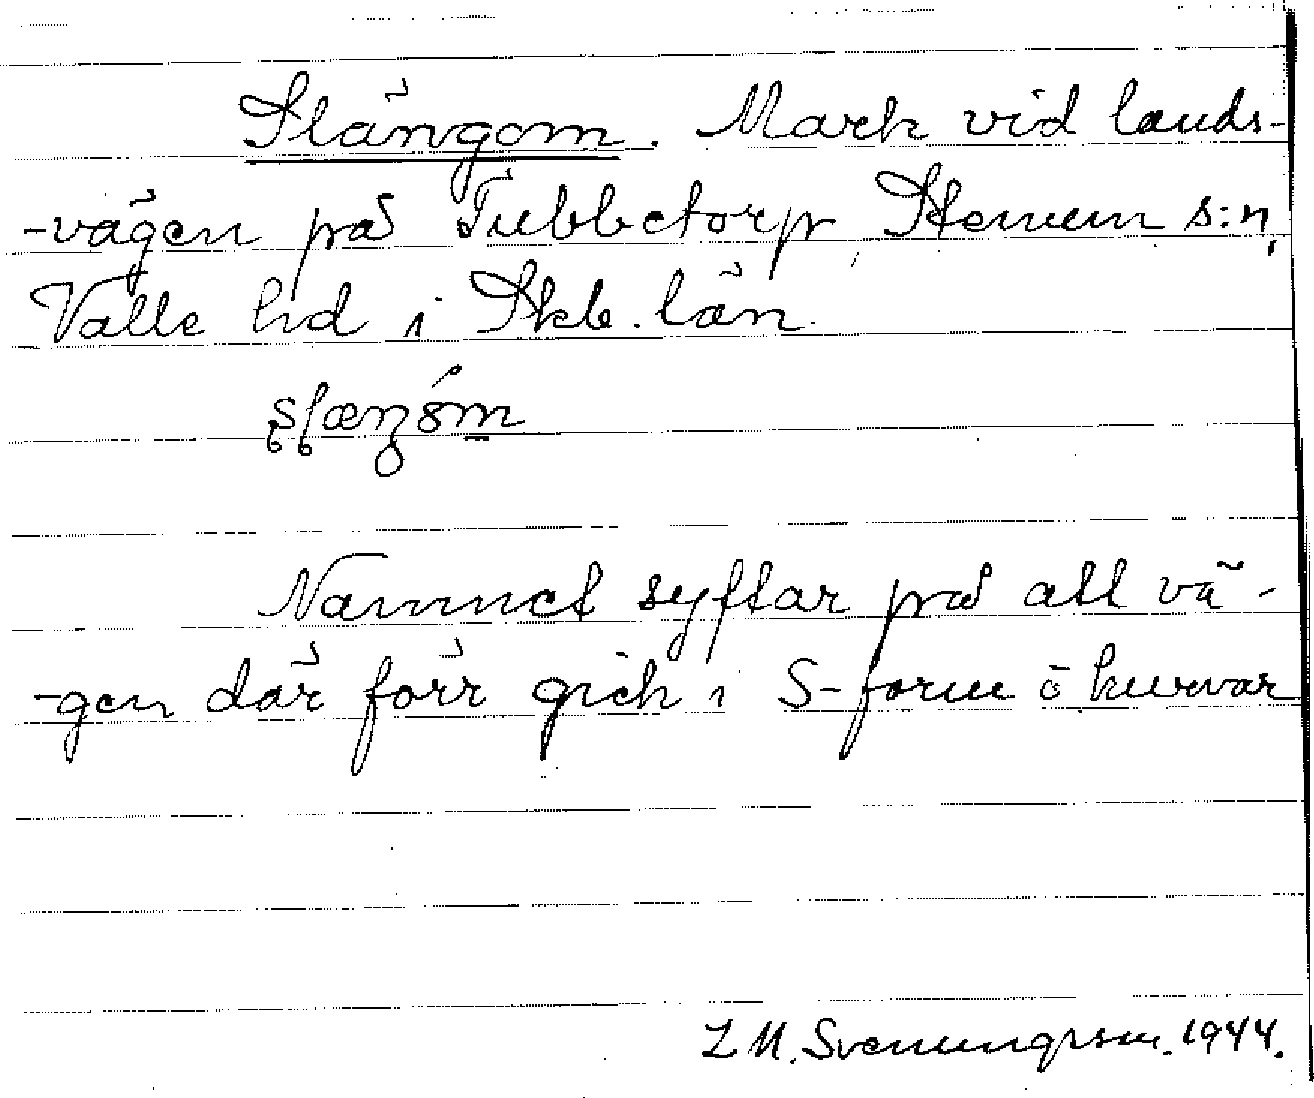 Slängom. Mark vid lands-
-vägen på Tubbetorp, Stenum s:n,
Valle hd i Skb. län.
Namnet syftar på att vä-
-gen där förr gick i S-form o kurvar
L M. Svenungsson. 1944.